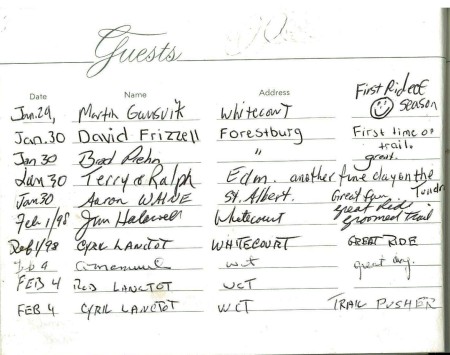 Guests
Date Name Address
Jan. 29, Martin Whitecourt First Ride of Season
Jan. 30 David Frizzell Forestburg First time on trail. great.
Jan 30 Brad "
Jan 30 Terry Ralph Edm. another fine day on the Tundra
Jan 30 Aaron St. Albert. Great fun
Feb 1/98 Jim Whitecourt great Ride Groomed Trail
Feb 1/98 Cyril Lanctot Whitecourt Great Ride
Feb 4 wct great day.
Feb 4 Rod Lanctot wct
Feb 4 Cyril Lanctot wct Trail Pusher